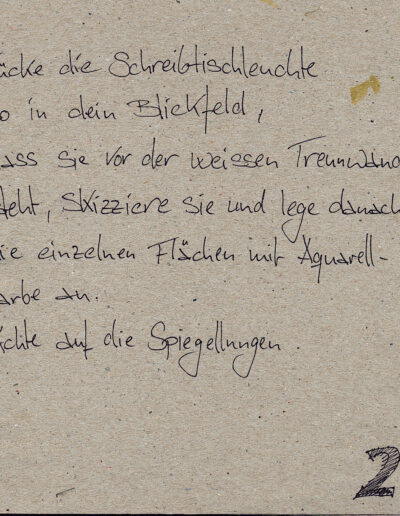 ücke die Schreibtischleuchte
o in dein Blickfeld,
ass sie vor der weissen Trennwand
teht, skizziere sie und lege danach
ie einzelnen Flächen mit Aquarell-
arbe an.
ichte auf die Spiegellungen
2